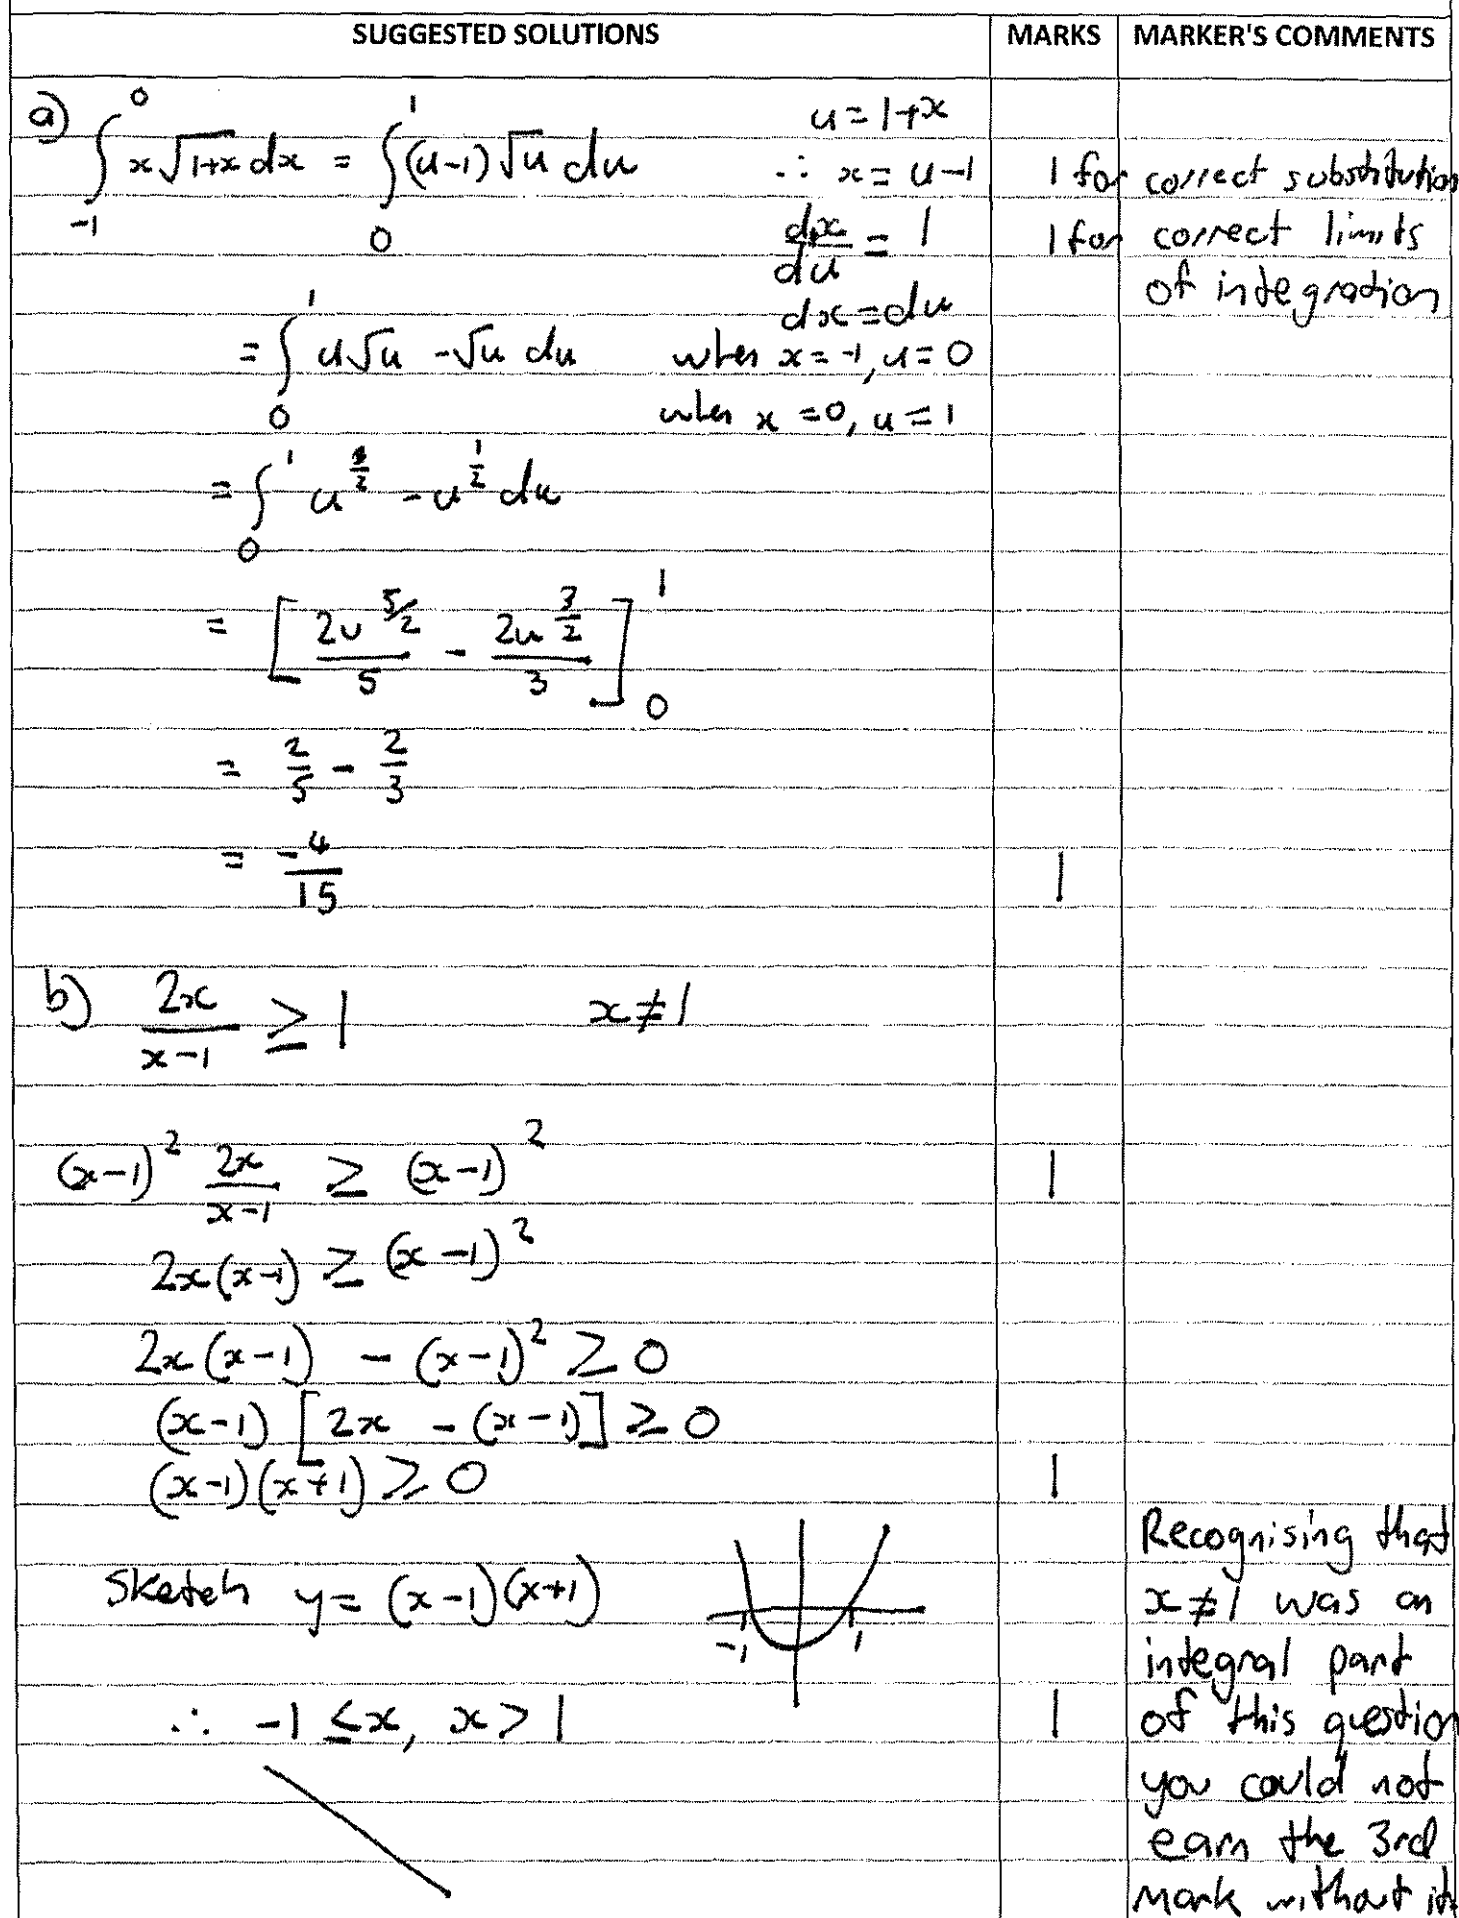 SUGGESTED SOLUTIONS MARKS MARKER'S COMMENTS
a) ∫₋₁⁰ x√(1+x) dx = ∫₀¹ (u-1)√u du u = 1+x
∴ x = u-1 1 for correct substitution
dx/du = 1 1 for correct limits
of integration
dx = du
= ∫₀¹ u√u - √u du when x = -1, u = 0
when x = 0, u = 1
= ∫₀¹ u^(3/2) - u^(1/2) du
= [2u^(5/2)/5 - 2u^(3/2)/3]₀¹
= 2/5 - 2/3
= -4/15 1
b) 2x/(x-1) ≥ 1 x ≠ 1
(x-1)² 2x/(x-1) ≥ (x-1)² 1
2x(x-1) ≥ (x-1)²
2x(x-1) - (x-1)² ≥ 0
(x-1)[2x - (x-1)] ≥ 0
(x-1)(x+1) ≥ 0 1
Sketch y = (x-1)(x+1)
-1 1
∴ -1 ≤ x, x > 1 1
Recognising that
x ≠ 1 was an
integral part
of this question
you could not
earn the 3rd
mark without it